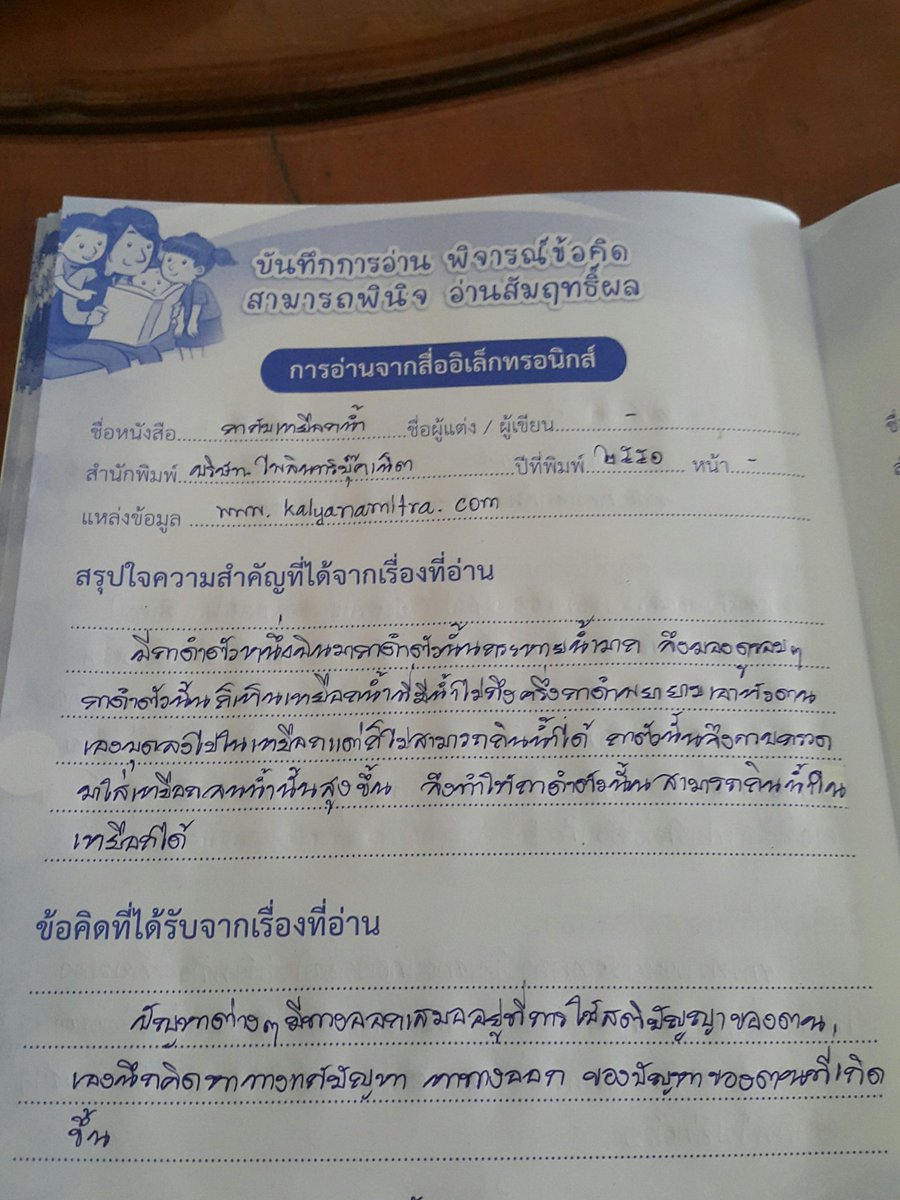 บันทึกการอ่าน พิจารณ์ข้อคิด
สามารถพินิจ อ่านสัมฤทธิ์ผล
การอ่านจากสื่ออิเล็กทรอนิกส์
ชื่อหนังสือ กากับเหยือกน้ำ ชื่อผู้แต่ง / ผู้เขียน -
สำนักพิมพ์ บริษัท ไพลินบุ๊คเน็ต ปีที่พิมพ์ ๒๕๕๑ หน้า -
แหล่งข้อมูล www.kalyanamitra.com
สรุปใจความสำคัญที่ได้จากเรื่องที่อ่าน
มีกาดำตัวหนึ่งบินมากาดำตัวนั้นกระหายน้ำมาก จึงมองดูรอบๆ
กาดำตัวนั้นก็เห็นเหยือกน้ำที่มีน้ำไม่ถึงครึ่งกาดำพยายามเอาหัวตน
เองมุดลงไปในเหยือกแต่ก็ไม่สามารถกินน้ำได้ กาตัวนั้นจึงคาบกรวด
มาใส่เหยือกจนน้ำนั้นสูงขึ้น จึงทำให้กาดำตัวนั้นสามารถกินน้ำใน
เหยือกได้
ข้อคิดที่ได้รับจากเรื่องที่อ่าน
ปัญหาต่างๆมีทางออกเสมออยู่ที่การใช้สติปัญญาของตน
เองนึกคิดหาทางแก้ปัญหา หาทางออก ของปัญหาของตนที่เกิด
ขึ้น